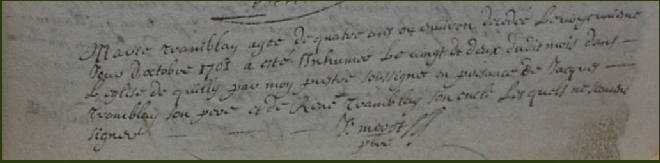 Marie tramblay agee de quatre ans ou environ decedée le vingt unieme
Jour d'octobre 1701 a esté Inhumée le vingt et deux dudis mois dans
L'eglise de quilly par moy pretre soussigné en presance de Jacques
tramblay son pere et de René tramblay son oncle lesquels ne scavent
signer
prtre